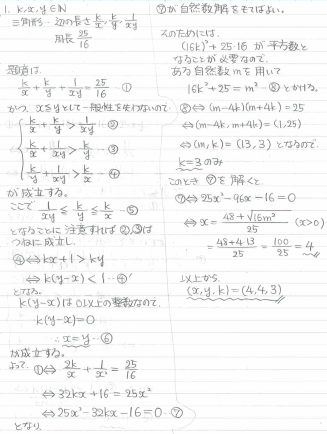 1. k,x,y∈N
三角形…辺の長さ k/x, k/y, 1/xy
周長 25/16
題意は.
k/x + k/y + 1/xy = 25/16 …①
かつ x≦yとして一般性を失わないので.
k/x + k/y > 1/xy …②
k/x + 1/xy > k/y …③
k/y + 1/xy > k/x …④
が成立する。
ここで 1/xy ≦ k/y ≦ k/x …⑤
となることに注意すれば②,③は
つねに成立し.
④⇔ kx+1 > ky
⇔ k(y-x) < 1 …④'
となる。
k(y-x)は0以上の整数なので.
k(y-x)=0
∴ x=y …⑥
が成立する。
よって. ①⇔ 2k/x + 1/x² = 25/16
⇔ 32kx+16 = 25x²
⇔ 25x²-32kx-16=0 …⑦
となり、
⑦が自然数解をもてばよい。
そのためには.
(16k)²+25·16 が平方数と
なることが必要なので.
ある自然数mを用いて
16k²+25=m² …⑧ とかける。
⑧⇔ (m-4k)(m+4k)=25
⇔ (m-4k, m+4k)=(1,25)
⇔ (m,k)=(13,3) となるので.
k=3 のみ
このとき ⑦を解くと.
⑦⇔ 25x²-96x-16=0
⇔ x = (48+√16m²)/25 (x>0)
= (48+4·13)/25 = 100/25 = 4
以上から.
(x,y,k)=(4,4,3)